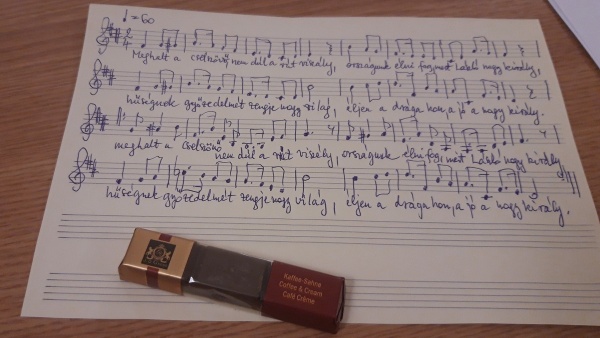 ♩=60
Meghalt a cselszövő, nem dúl a rút viszály, országunk élni fog, mert László nagy király,
hűségnek győzedelmét zengje nagy világ, éljen a drága hon, a jó a nagy király.
meghalt a cselszövő nem dúl a rút viszály, országunk élni fog, mert László nagy király,
hűségnek győzedelmét zengje nagy világ, éljen a drága hon, a jó a nagy király.
Kaffee-Sahne
Coffee & Cream
Café Crème